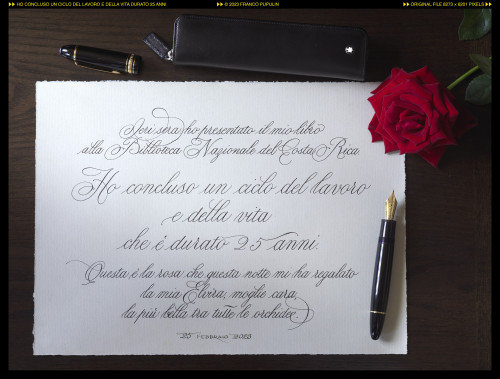 HO CONCLUSO UN CICLO DEL LAVORO E DELLA VITA DURATO 25 ANNI
© 2023 FRANCO PUPULIN
ORIGINAL FILE 8273 × 6201 PIXELS
Ieri sera ho presentato il mio libro
alla Biblioteca Nazionale del Costa Rica
Ho concluso un ciclo del lavoro
e della vita
che è durato 25 anni.
Questa è la rosa che questa notte mi ha regalato
la mia Elvira, moglie cara,
la più bella tra tutte le orchidee.
25 FEBBRAIO 2023